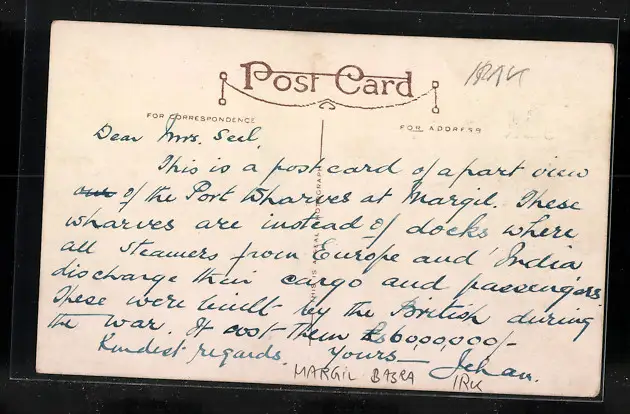 Post Card
IRAK
FOR CORRESPONDENCE
FOR ADDRESS
THIS IS A REAL PHOTOGRAPH
Dear Mrs. Seel,
This is a post card of a part view
of the Port Wharves at Margil. These
wharves are instead of docks where
all steamers from Europe and India
discharge their cargo and passengers.
These were built by the British during
the war. It cost them £60,00,000/-
Kindest regards. Yours
Jehan.
MARGIL BASRA IRK